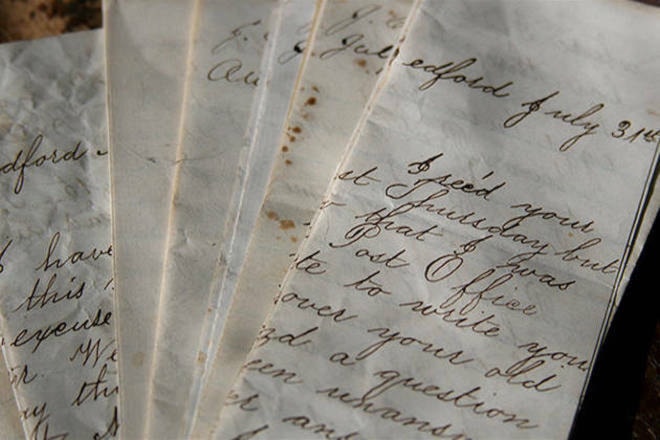 dford
I have
this
excuse
We
J.
Au
J.
Jul
edford July 31st
I rec'd your
st Thursday but
that I was
Post Office
te to write you
over your old
a question
een unans
er an